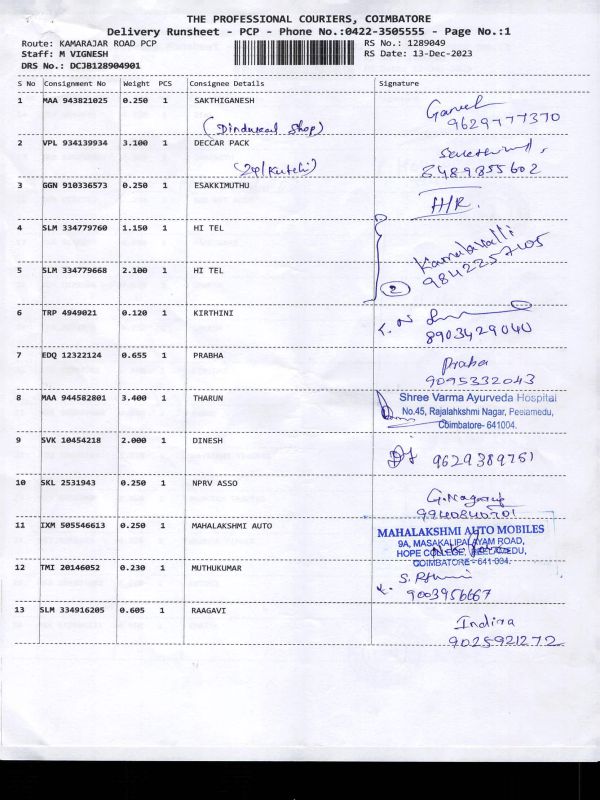 THE PROFESSIONAL COURIERS, COIMBATORE
Delivery Runsheet - PCP - Phone No.:0422-3505555 - Page No.:1
Route: KAMARAJAR ROAD PCP RS No.: 1289049
Staff: M VIGNESH RS Date: 13-Dec-2023
DRS No.: DCJB128904901
S No Consignment No Weight PCS Consignee Details Signature
1 MAA 943821025 0.250 1 SAKTHIGANESH Ganesh
9629777370
(Dindukal Shop)
2 VPL 934139934 3.100 1 DECCAR PACK
8489855602
3 GGN 910336573 0.250 1 ESAKKIMUTHU H/R.
4 SLM 334779760 1.150 1 HI TEL Kamalavalli
9842257105
5 SLM 334779668 2.100 1 HI TEL 2
6 TRP 4949021 0.120 1 KIRTHINI
8903429040
7 EDQ 12322124 0.655 1 PRABHA Praba
9095332043
8 MAA 944582801 3.400 1 THARUN Shree Varma Ayurveda Hospital
No.45, Rajalahkshmi Nagar, Peelamedu,
Coimbatore- 641004.
9 SVK 10454218 2.000 1 DINESH 9629389751
10 SKL 2531943 0.250 1 NPRV ASSO G.Nagaraj
9940840701
11 IXM 505546613 0.250 1 MAHALAKSHMI AUTO MAHALAKSHMI AUTO MOBILES
9A, MASAKALIPALAYAM ROAD,
HOPE COLLEGE, PEELAMEDU,
COIMBATORE - 641 004.
12 TMI 20146052 0.230 1 MUTHUKUMAR
9003956667
13 SLM 334916205 0.605 1 RAAGAVI Indira
9025921272